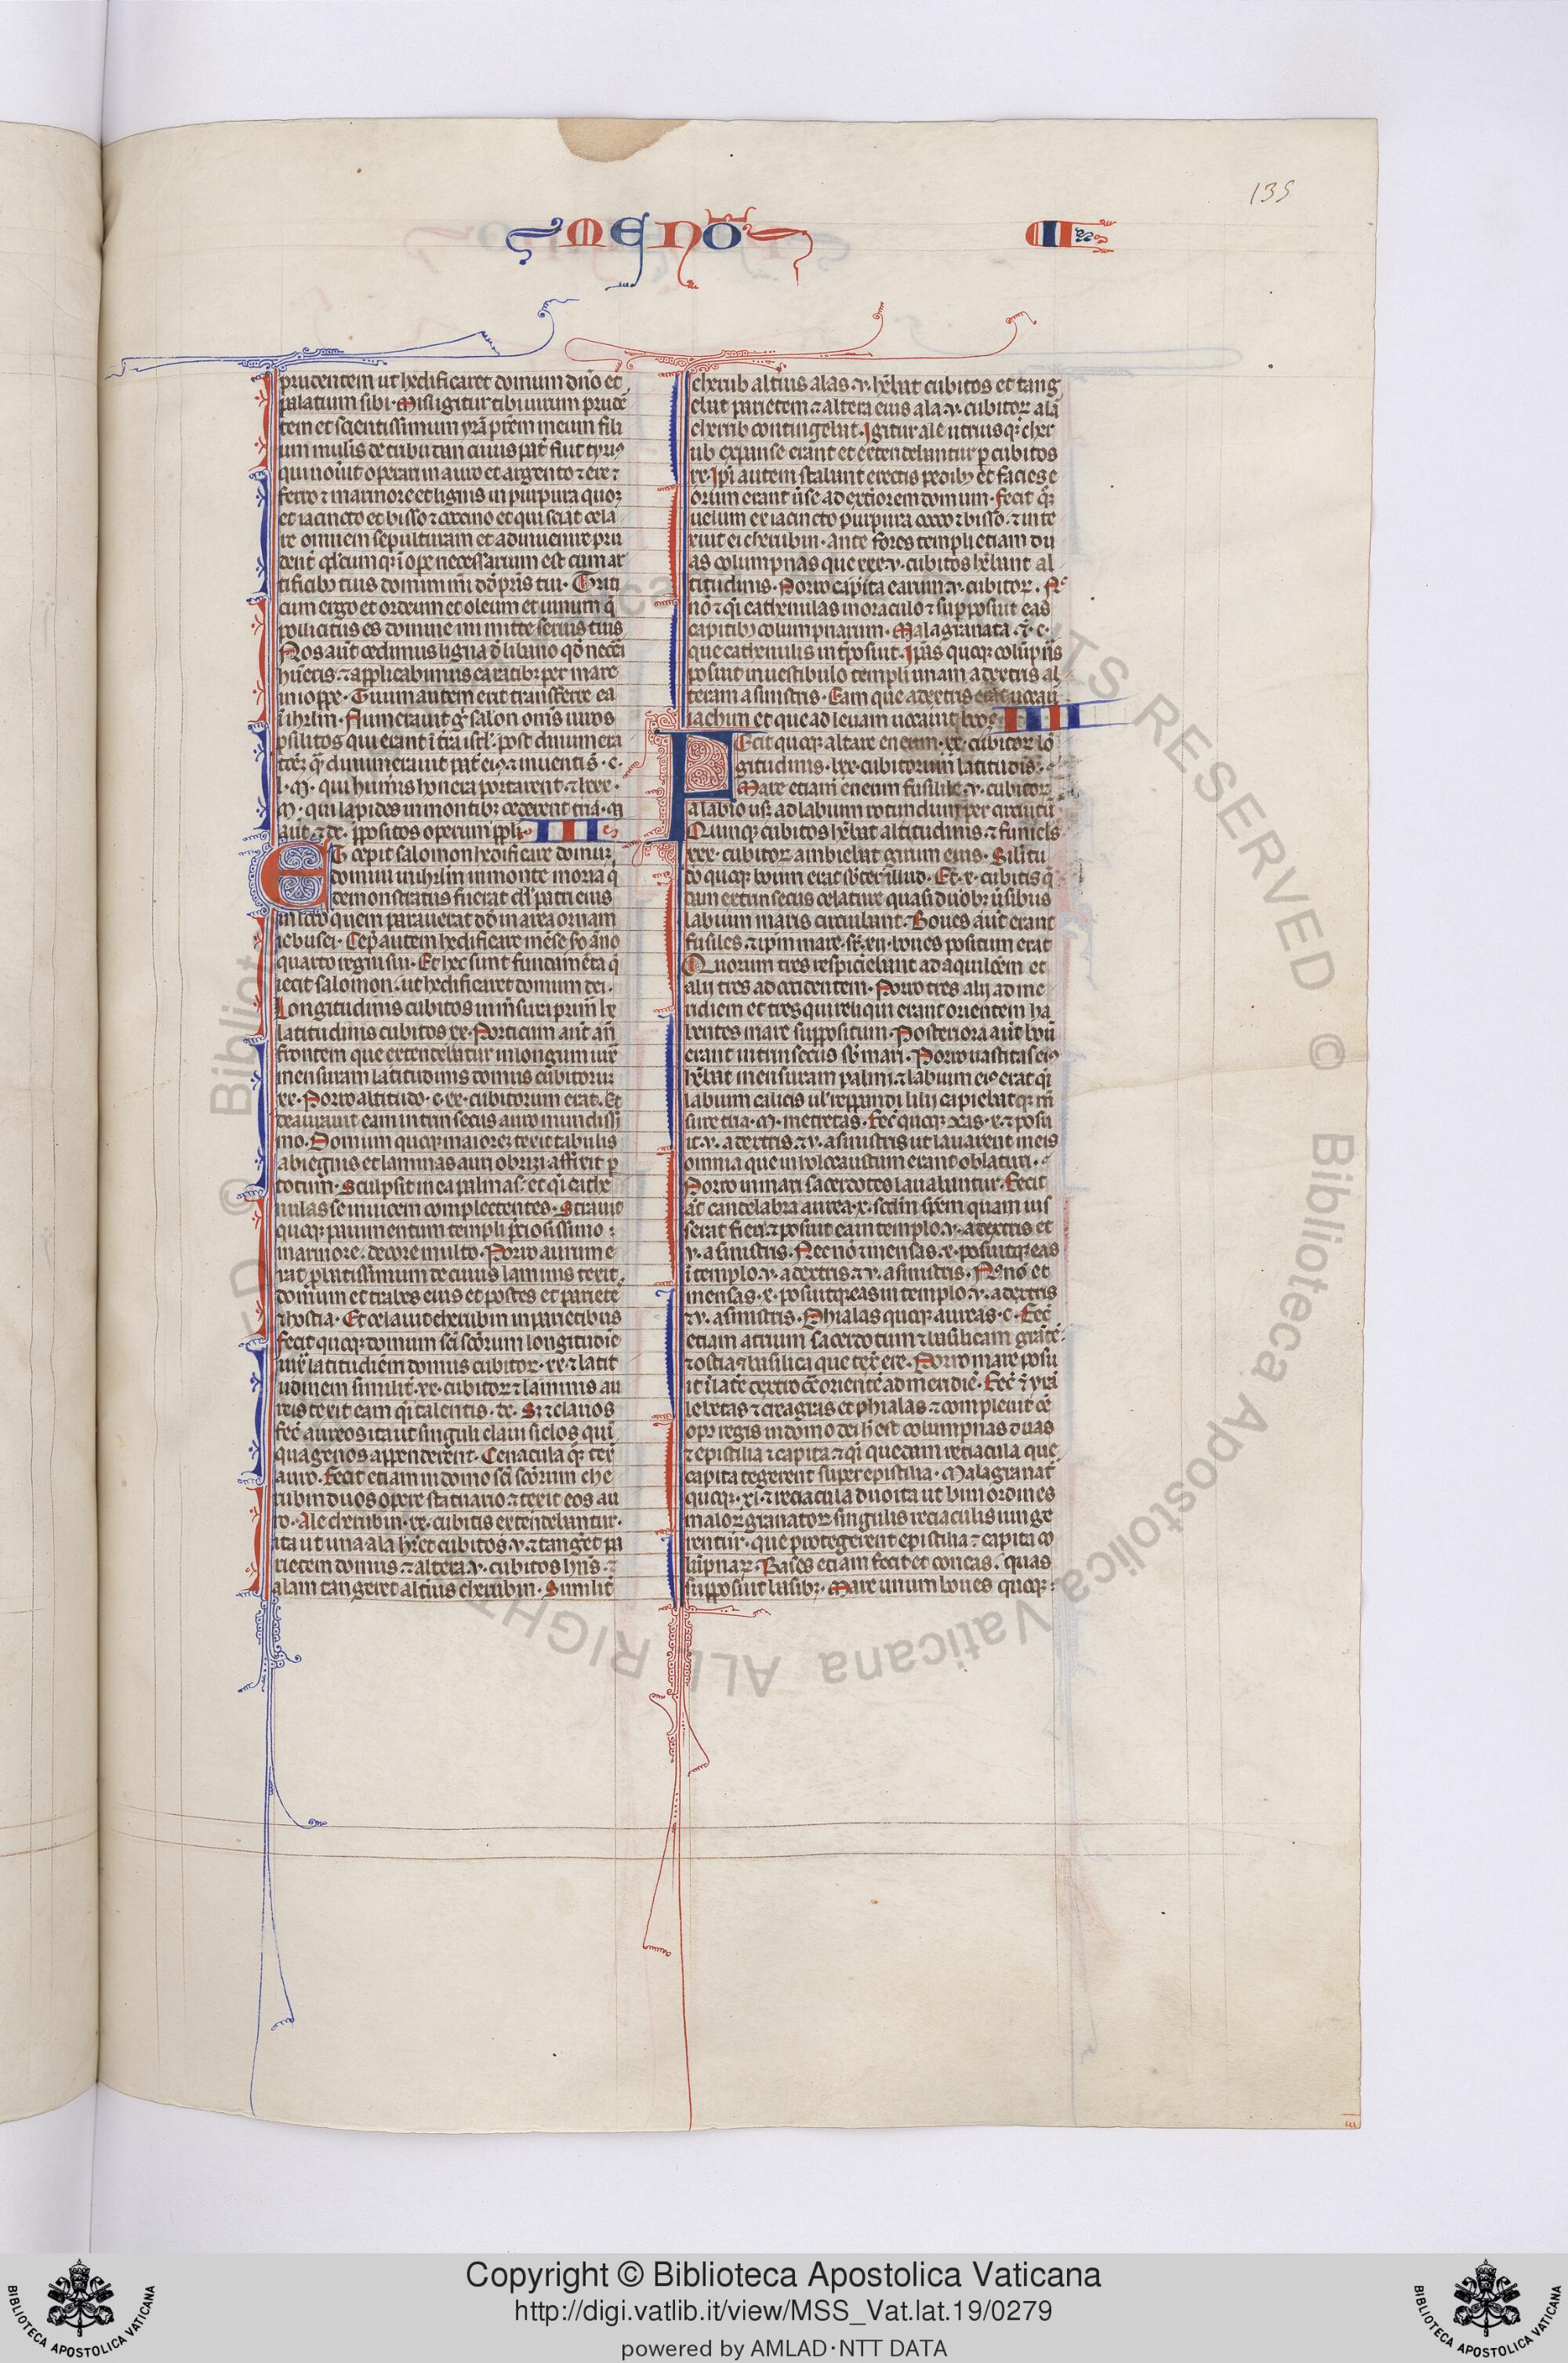 135
MENO
II
prudentem ut hedificaret domum dno et
palatium sibi. Misi igitur tibi uirum pruden
tem et scientissimum yrã ptẽm meum fili
um mulis de tribu tan cuius pat̃ fuit tyrꝰ
qui nouit operari in auro et argento ⁊ ere ⁊
ferro ⁊ marmore et lignis in purpura quoꝗ
et iacincto et bisso ⁊ coccino et qui sciat cela
re omnem sepulturam et adinuenire pru
dent̃ qd̃cumqꝫ ĩ ope necessarium est cum ar
tificibꝫ tuis domini mĩ dd̃ pris tui. Triti
cum ergo et ordeum et oleum et uinum q̃
pollicitus es domine mi mitte seruis tuis
Nos aut̃ cedimus ligna d̃ libano qd̃ necc̃i
hũeris. ⁊ applicabimus ea ratibꝫ per mare
in ioppe. Tuum autem erit transferre ea
ĩ ihrlm. Numerauit gͥ salon omĩs uiros
pselitos qui erant ĩ tr̃a isrl. post dinumera
tõeꝫ q̃ dinumerauit pat̃ eiꝰ ⁊ inuenti s̃. c.
l. m. qui humis honera portarent. ⁊ lxxx.
m. qui lapides in montibꝫ cederent tria. m
aut̃. ⁊ dc. p̃positos operum ppli. III
ET cepit salomon hedificare domuꝫ
domini in ihrlm in monte moria q̃
demonstratus fuerat dd̃ patri eius
in loco quem parauerat dd̃ in area ornam
iebusei. Cepͭ autem hedificare mẽse sᷤo ãno
quarto regni sui. Et hec sunt fundamẽta q̃
iecit salomon. ut hedificaret domum dei.
Longitudinis cubitos in m̃sura prim̃ lx
latitudinis cubitos xx. Porticum aut̃ an̄
frontem que extendebatur in longum iux̃
mensuram latitudinis domus cubitoruꝫ
xx. Porro altitudo. c. xx. cubitorum erat. Et
deaurauit eam intrinsecus auro mundissi
mo. Domum quoqꝫ maioreꝫ texit tabulis
abiegnis et laminas auri obrizi affixit p
totum. Sculpsit in ea palmas: et qͥ cathe
nulas se inuicem complectentes. Strauit
quoqꝫ pauimentum templi p̃ciosissimo:
marmore. decore multo. Porro aurum e
rat probatissimum de cuius laminis texit.
domum et trabes eius et postes et parietẽ
⁊ hostia. Et celauit cherubin in parietibus
fecit quoqꝫ domum scĩ scõrum longitudĩe
iux̃ latitudiẽm domus cubitoꝝ. xx. ⁊ latit
udinem similit̃. xx. cubitoꝝ ⁊ laminis au
reis texit eam qͥ talentis. dc. Sꝫ ⁊ clauos
fec̃ aureos ita ut singuli claui siclos quĩ
quagenos appenderent. Cenacula qͦqꝫ tex̃
auro. Fecit etiam in domo scĩ scõrum che
rubin duos opere statuario ⁊ texit eos au
ro. Ale cherubin. xx. cubitis extendebantur.
ita ut una ala hr̃et cubitos. v. ⁊ tanget pa
rietem domus ⁊ altera. v. cubitos hñs. ⁊
alam tangeret altius cherubin. Similit̃
cherub altius alas. v. hẽbat cubitos et tang
ebat parietem ⁊ altera eius ala. v. cubitoꝝ alã
cherub contingebat. Igitur ale utriusqꝫ cher
ub expanse erant et extendebantur p cubitos
xx. Ipͥ autem stabant erectis pedibꝫ et facies e
orum erant ũse ad exͭiorem domum. Fecit qͦꝫ
uelum ex iacincto purpura cocco ⁊ bisso. ⁊ inte
xuit ei cherubin. ante fores templi etiam du
as columpnas que xxx. v. cubitos hẽbant al
titudinis. Porro capita earum. v. cubitoꝝ. Ne
nõ ⁊ qͥ cathenulas in oraculo ⁊ supposuit eas
capitibꝫ columpnarum. Malagranata. c̃. c.
que cathenulis int̃posuit. Ip̃as quoqꝫ colũpñs
posuit in uestibulo templi unam a dextris al
teram a sinistris. Eam que a dextris erat uocau
iachin et que ad leuam uocauit booz. IIII
FEcit quoqꝫ altare eneum. xx. cubitoꝝ lõ
gitudinis. xx. cubitorum latitudĩs.
Mare etiam eneum fusilile. x. cubitoꝝ
a labio usqꝫ ad labium rotundum per circuitũ
Quinqꝫ cubitos hẽbat altitudinis ⁊ funicls
xxx. cubitoꝝ ambiebat girum eius. Silitu
do quoqꝫ boum erat sb̃ter illud. Et. x. cubitis q̃
dam extrinsecus celature quasi duobꝫ ũsibus
labium maris circuibant. Boues aut̃ erant
fusiles. ⁊ ipm mare. sᷤ. xij. boues positum erat
Quorum tres respiciebant ad aquilõem et
alij tres ad occidentem. Porro tres alij ad me
ridiem et tres qui reliqui erant orientem ha
bentes mare suppositum. Posteriora aut̃ boũ
erant intrinsecus sb̃ mari. Porro uastitas eiꝰ
hẽbat mensuram palmi. ⁊ labium eiꝰ erat qͥ
labium calicis ul̃ reppandi lilij capiebatqꝫ m̃
sure tria. m. metretas. Fec̃ quoqꝫ cõcas. x. ⁊ posu
it. v. a dextris. ⁊ v. a sinistris ut lauarent in eis
omnia que in holocaustum erant oblaturi.
Porro in mari sacerdotes lauabuntur. Fecit
aũt candelabra aurea. x. scdm spẽm quam ius
serat fieri. ⁊ posuit ea in templo. v. a dextris et
v. a sinistris. Nec nõ ⁊ mensas. x. posuitqꝫ eas
ĩ templo. v. a dextris. ⁊ v. a sinistris. Nᶜ nõ et
mensas. x. posuitqꝫ eas in templo. v. a dextris
⁊ v. a sinistris. Phialas quoqꝫ aureas. c. Fec̃
etiam atrium sacerdotum ⁊ basilicam grãdẽ.
⁊ ostia ⁊ basilica que tex̃ ere. Porro mare posu
it ĩ lat̃e dextro cõ orientẽ ad meridiẽ. Fec̃ ⁊ yrã
lebetas ⁊ creagras et phialas ⁊ compleuit oẽ
opꝰ regis in domo dei h̃ est columpnas duas
⁊ epistilia ⁊ capita. ⁊ qͥ quedam retiacula que
capita tegerent super epistilia. Malagranat̃
quoqꝫ. xl. ⁊ retiacula duo ita ut bini ordines
maloꝝ granatoꝝ singulis retiaculis iunge
rentur. que protegerent epistilia ⁊ capita co
lũpnaꝝ. Bases etiam fecit et concas. quas
supposuit basibꝫ. Mare unum boues quoqꝫ
Copyright © Biblioteca Apostolica Vaticana
http://digi.vatlib.it/view/MSS_Vat.lat.19/0279
powered by AMLAD·NTT DATA
BIBLIOTECA APOSTOLICA VATICANA
BIBLIOTECA APOSTOLICA VATICANA